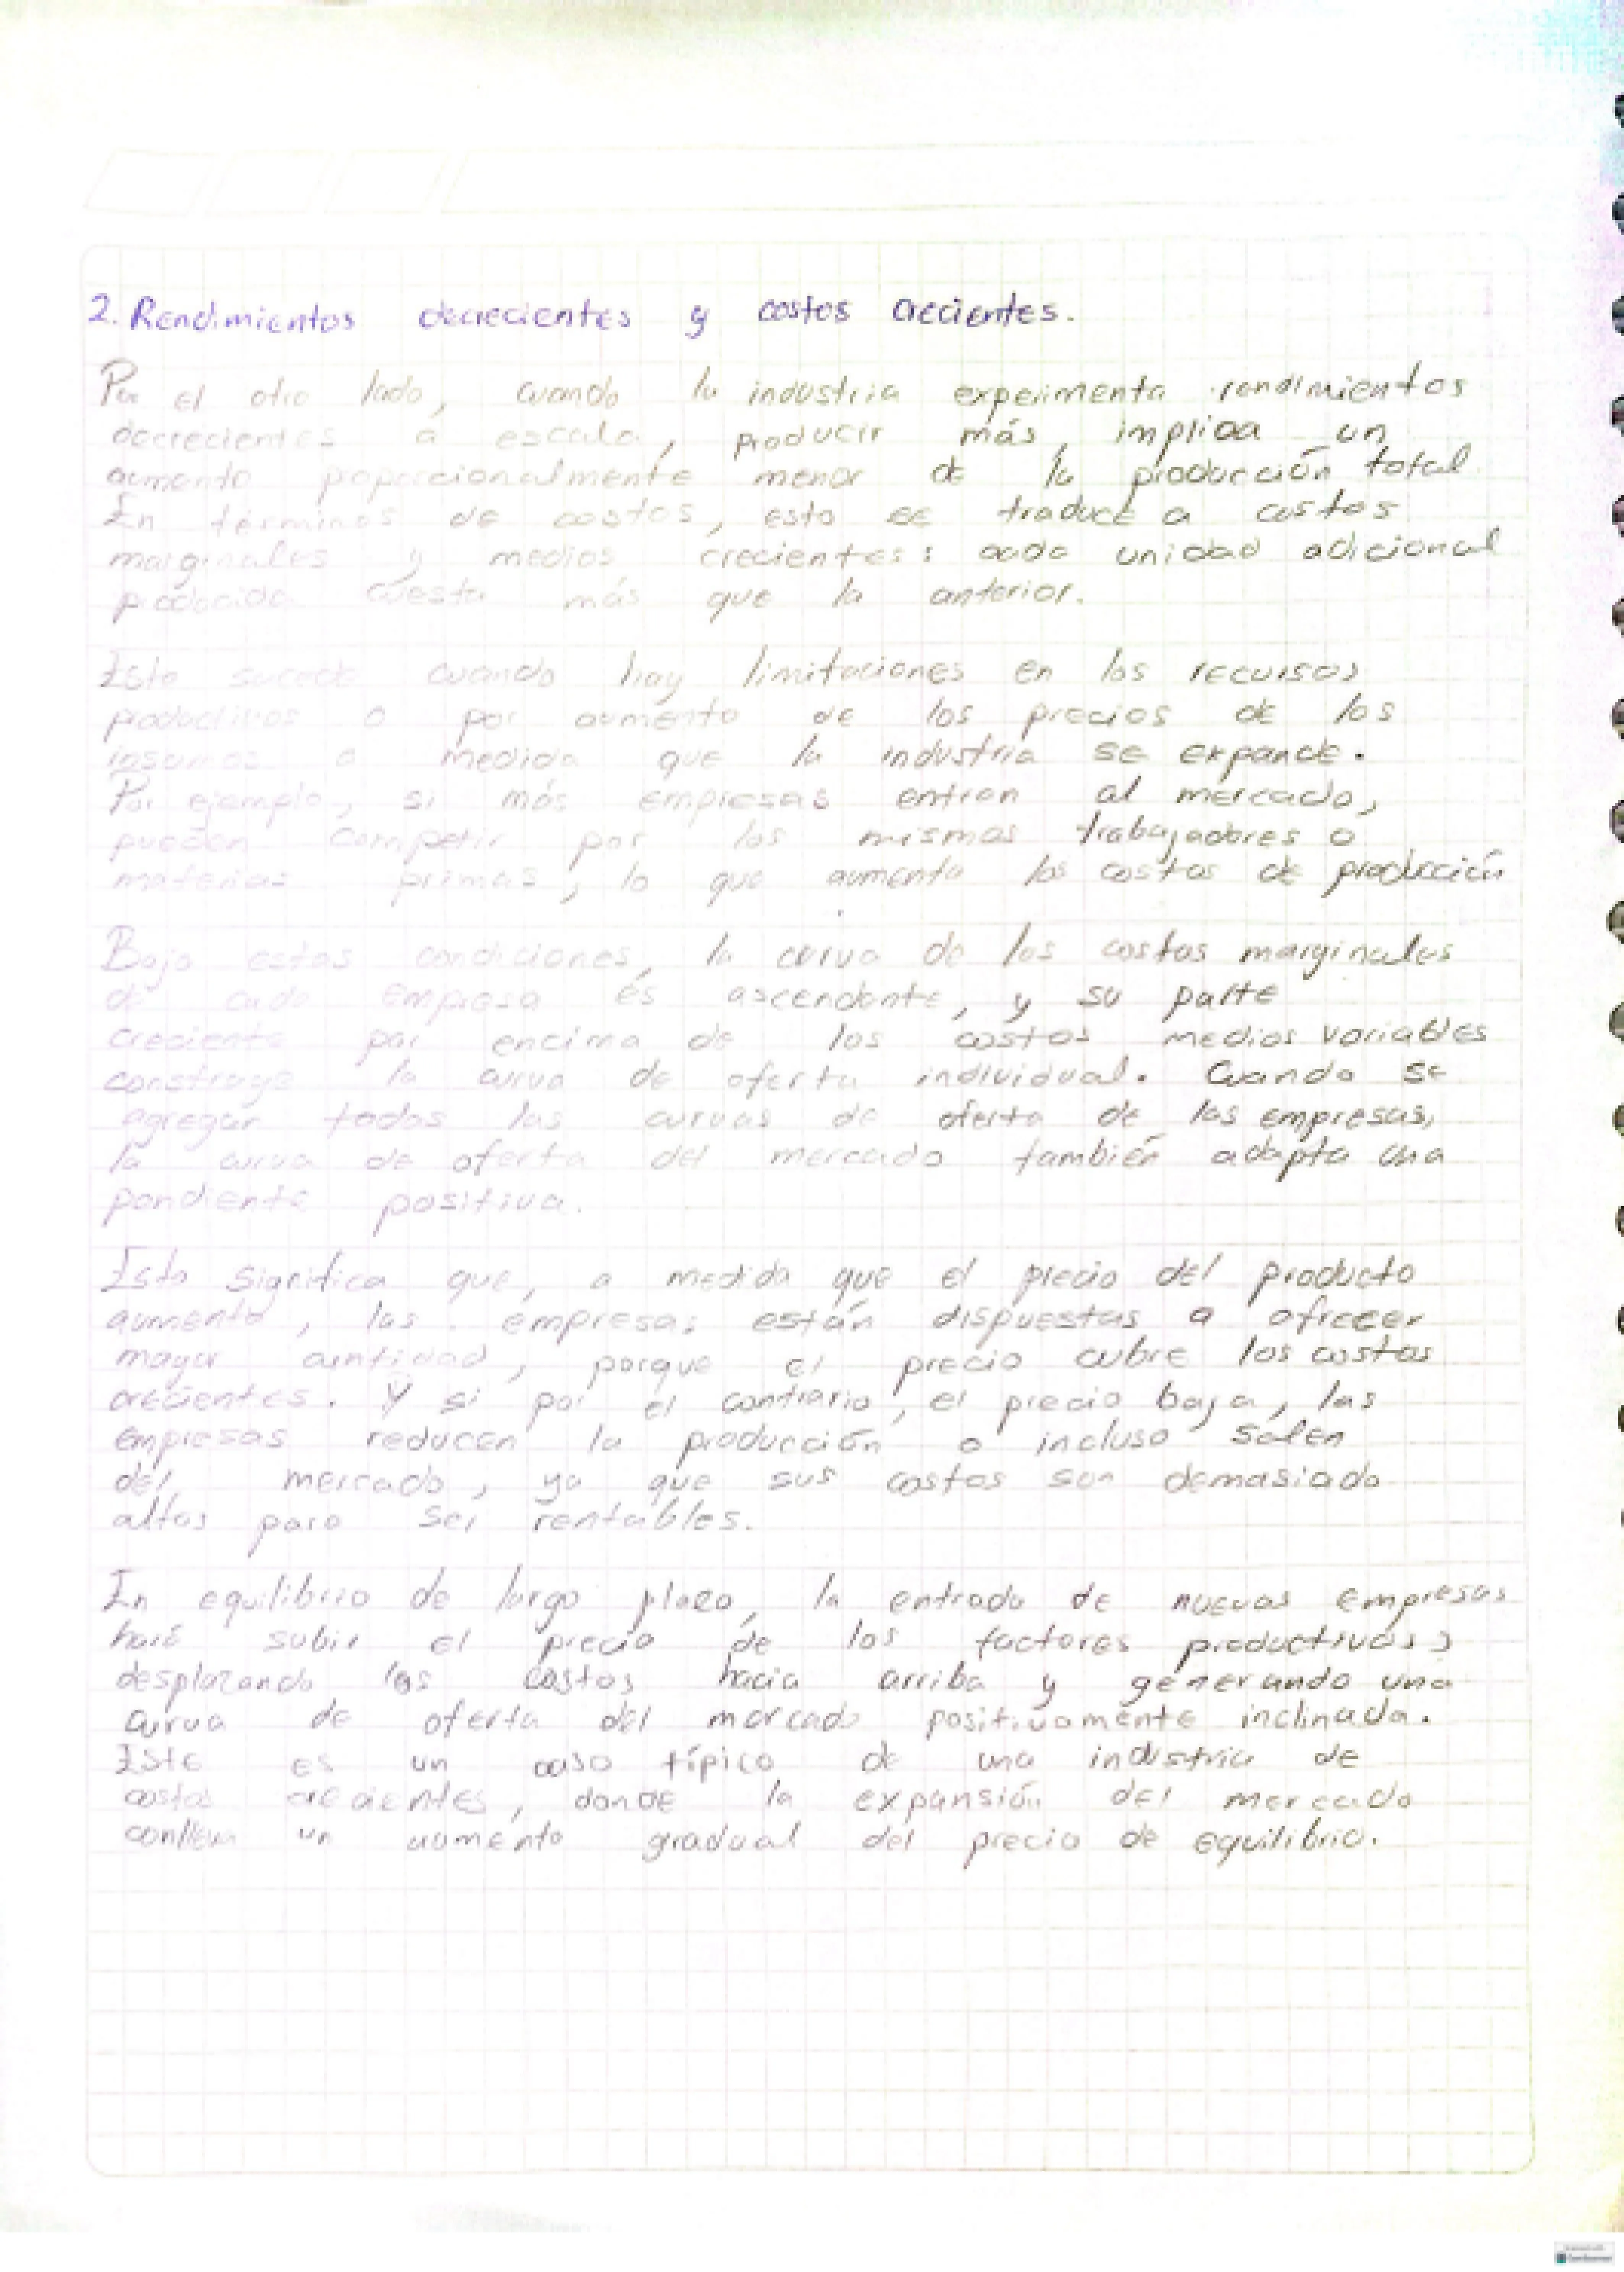 2. Rendimientos decrecientes y costos crecientes.
Por el otro lado, cuando la industria experimenta rendimientos
decrecientes a escala, producir más, implica un
aumento proporcionalmente menor de la producción total.
En términos de costos, esto se traduce a costos
marginales y medios crecientes: cada unidad adicional
producida cuesta más que la anterior.
Esto sucede cuando hay limitaciones en los recursos
productivos o por aumento de los precios de los
insumos a medida que la industria se expande.
Por ejemplo, si más empresas entran al mercado,
pueden competir por los mismos trabajadores o
materias primas, lo que aumenta los costos de producción
Bajo estas condiciones, la curva de los costos marginales
de cada empresa es ascendente, y su parte
creciente por encima de los costos medios variables
construye la curva de oferta individual. Cuando se
agregan todas las curvas de oferta de las empresas,
la curva de oferta del mercado también adapta una
pendiente positiva.
Esto significa que, a medida que el precio del producto
aumenta, las empresas están dispuestas a ofrecer
mayor cantidad, porque el precio cubre los costos
crecientes. Y si por el contrario, el precio baja, las
empresas reducen la producción o incluso salen
del mercado, ya que sus costos son demasiado
altos para ser rentables.
En equilibrio de largo plazo, la entrada de nuevas empresas
hará subir el precio de los factores productivos,
desplazando los costos hacia arriba y generando una
curva de oferta del mercado positivamente inclinada.
Este es un caso típico de una industria de
costos crecientes, donde la expansión del mercado
conlleva un aumento gradual del precio de equilibrio.